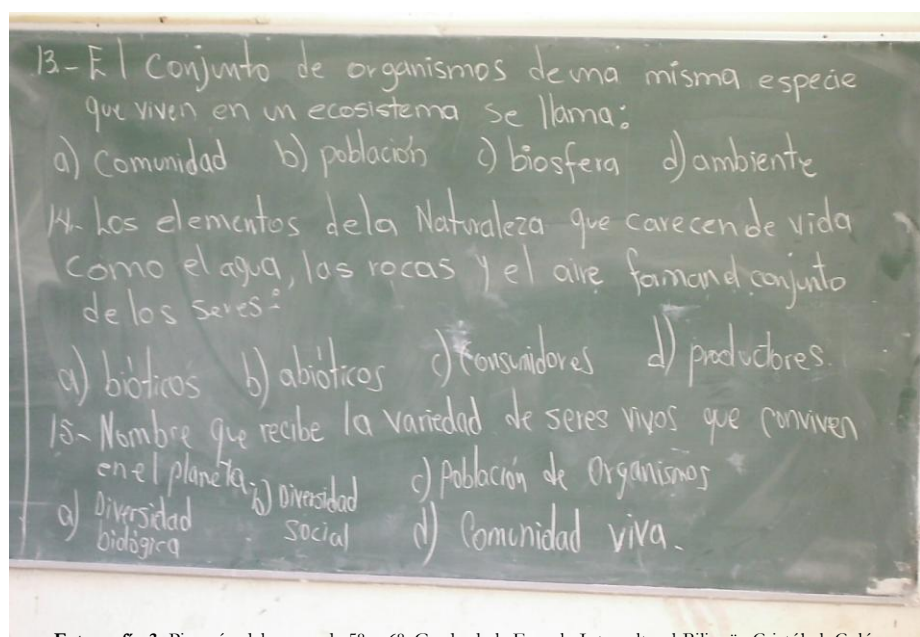 13.- El conjunto de organismos de una misma especie
que viven en un ecosistema se llama:
a) comunidad b) población c) biosfera d) ambiente
14.- Los elementos dela Naturaleza que carecen de vida
como el agua, las rocas y el aire forman el conjunto
de los seres:
a) bióticos b) abióticos c) Consumidores d) productores.
15.- Nombre que recibe la variedad de seres vivos que conviven
en el planeta.
a) Diversidad biológica b) Diversidad social c) Población de Organismos
d) Comunidad viva.